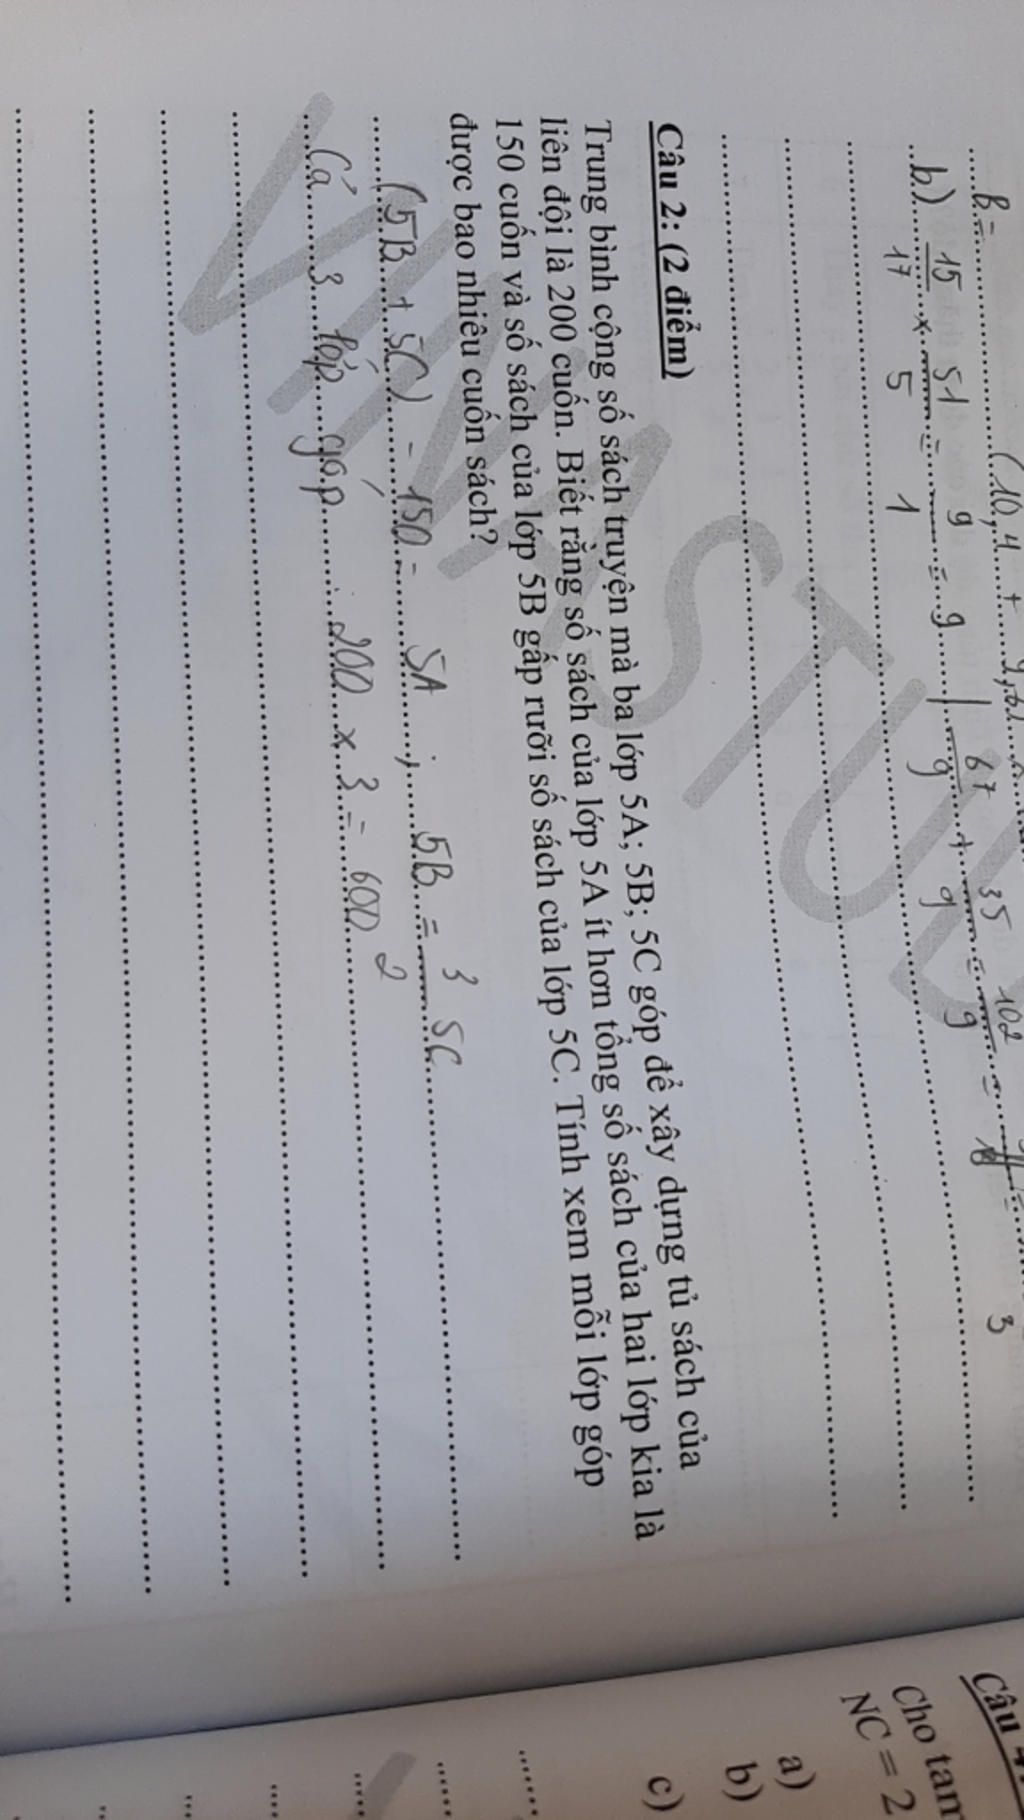 B =
(10,4 +
b) 15/17 × 51/5 = 9/1 = 9 | 67/9 + 35/9 = 102/9 =
3
Câu 2: (2 điểm)
Trung bình cộng số sách truyện mà ba lớp 5A; 5B; 5C góp để xây dựng tủ sách của
liên đội là 200 cuốn. Biết rằng số sách của lớp 5A ít hơn tổng số sách của hai lớp kia là
150 cuốn và số sách của lớp 5B gấp rưỡi số sách của lớp 5C. Tính xem mỗi lớp góp
được bao nhiêu cuốn sách?
(5B + 5C) - 150 = 5A ; 5B = 3/2 5C
Cả 3 lớp góp : 200 x 3 = 600
VINASTU
Câu 4
Cho tam
NC = 2
a)
b)
c)